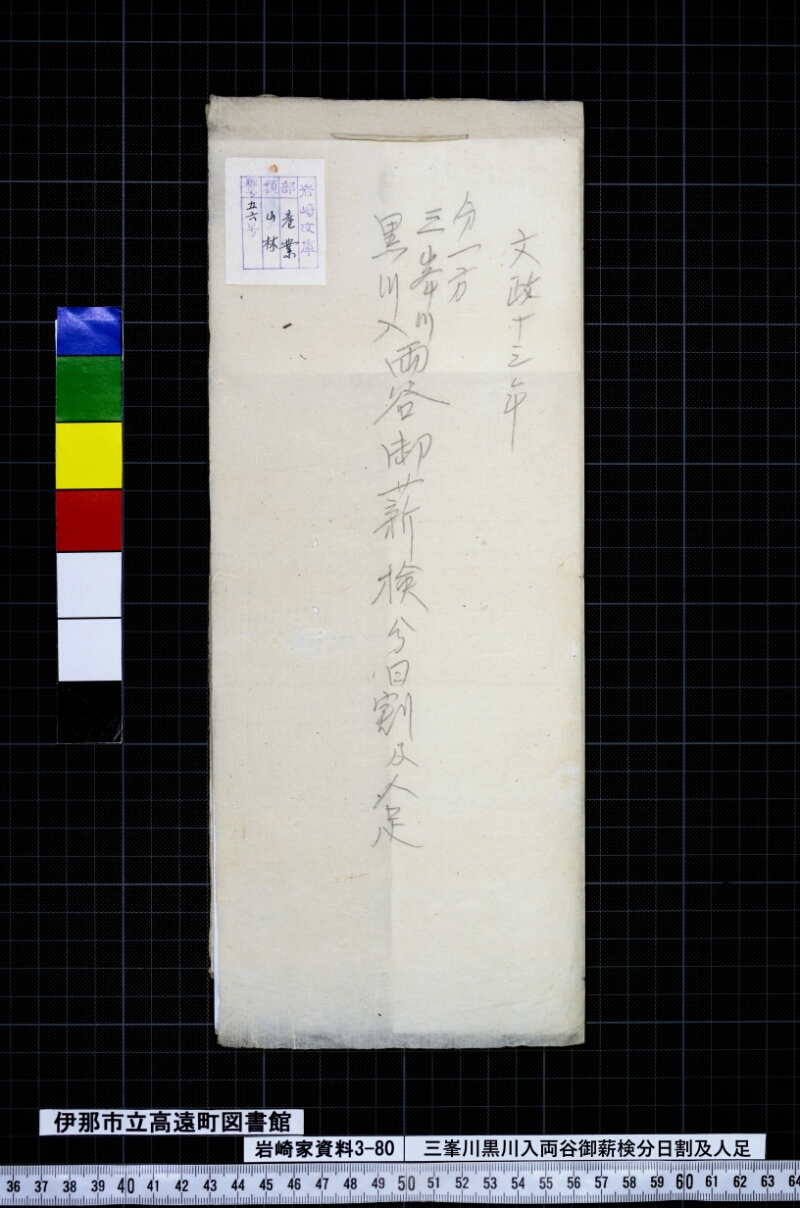 文政十三年
分一方
三峯川
黒川入両谷御薪検分日割及人足
岩崎文庫
部 産業
類 山林
五六号
伊那市立高遠町図書館
岩崎家資料3-80
三峯川黒川入両谷御薪検分日割及人足
36 37 38 39 40 41 42 43 44 45 46 47 48 49 50 51 52 53 54 55 56 57 58 59 60 61 62 63 64